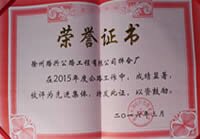 荣誉证书
徐州路兴公路工程有限公司拌合厂
在2015年度公路工作中,成绩显著,
被评为先进集体,特发此证,以资鼓励。
二〇一六年二月